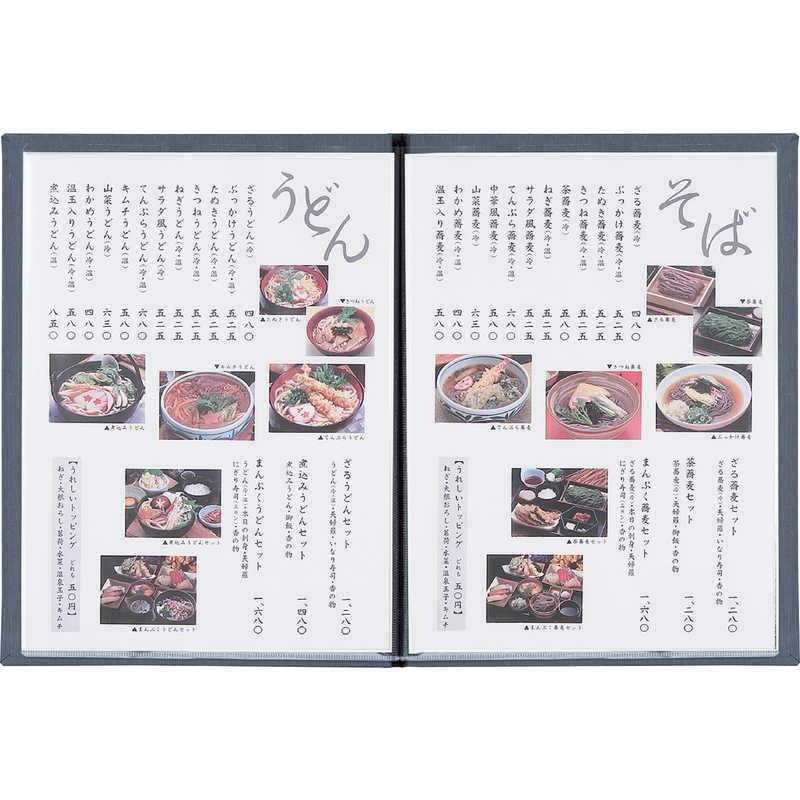 そば
ざる蕎麦(冷) 四八〇
ぶっかけ蕎麦(冷・温) 五二五
たぬき蕎麦(冷・温) 五二五
きつね蕎麦(冷・温) 五二五
茶蕎麦(冷) 五八〇
ねぎ蕎麦(冷・温) 五二五
サラダ風蕎麦(冷) 五二五
てんぷら蕎麦(冷・温) 六八〇
中華風蕎麦(冷) 五八〇
山菜蕎麦(冷) 六三〇
わかめ蕎麦(冷・温) 四八〇
温玉入り蕎麦(冷・温) 五八〇
▼茶蕎麦
▲ざる蕎麦
▼きつね蕎麦
▲てんぷら蕎麦
▲ぶっかけ蕎麦
ざる蕎麦セット 一、二八〇
ざる蕎麦(冷)・天婦羅・いなり寿司・香の物
茶蕎麦セット 一、二八〇
茶蕎麦(冷)・天婦羅・御飯・香の物
まんぷく蕎麦セット 一、六八〇
ざる蕎麦(冷)・本日の刺身・天婦羅
にぎり寿司・香の物
▲茶蕎麦セット
▲まんぷく蕎麦セット
【うれしいトッピング どれも 五〇円】
ねぎ・大根おろし・茗荷・水菜・温泉玉子・キムチ
うどん
ざるうどん(冷) 四八〇
ぶっかけうどん(冷・温) 五二五
たぬきうどん(冷・温) 五二五
きつねうどん(冷・温) 五二五
ねぎうどん(冷・温) 五二五
サラダ風うどん(冷) 五二五
てんぷらうどん(冷・温) 六八〇
キムチうどん(温) 五八〇
山菜うどん(冷) 六三〇
わかめうどん(冷・温) 四八〇
温玉入りうどん(冷・温) 五八〇
煮込みうどん(温) 八五〇
▼きつねうどん
▲たぬきうどん
▼キムチうどん
▲煮込みうどん
▲てんぷらうどん
ざるうどんセット 一、二八〇
うどん(冷)・天婦羅・いなり寿司・香の物
煮込みうどんセット 一、四八〇
煮込みうどん・御飯・香の物
まんぷくうどんセット 一、六八〇
うどん(冷・温)・本日の刺身・天婦羅
にぎり寿司・香の物
▲煮込みうどんセット
▲まんぷくうどんセット
【うれしいトッピング どれも 五〇円】
ねぎ・大根おろし・茗荷・水菜・温泉玉子・キムチ